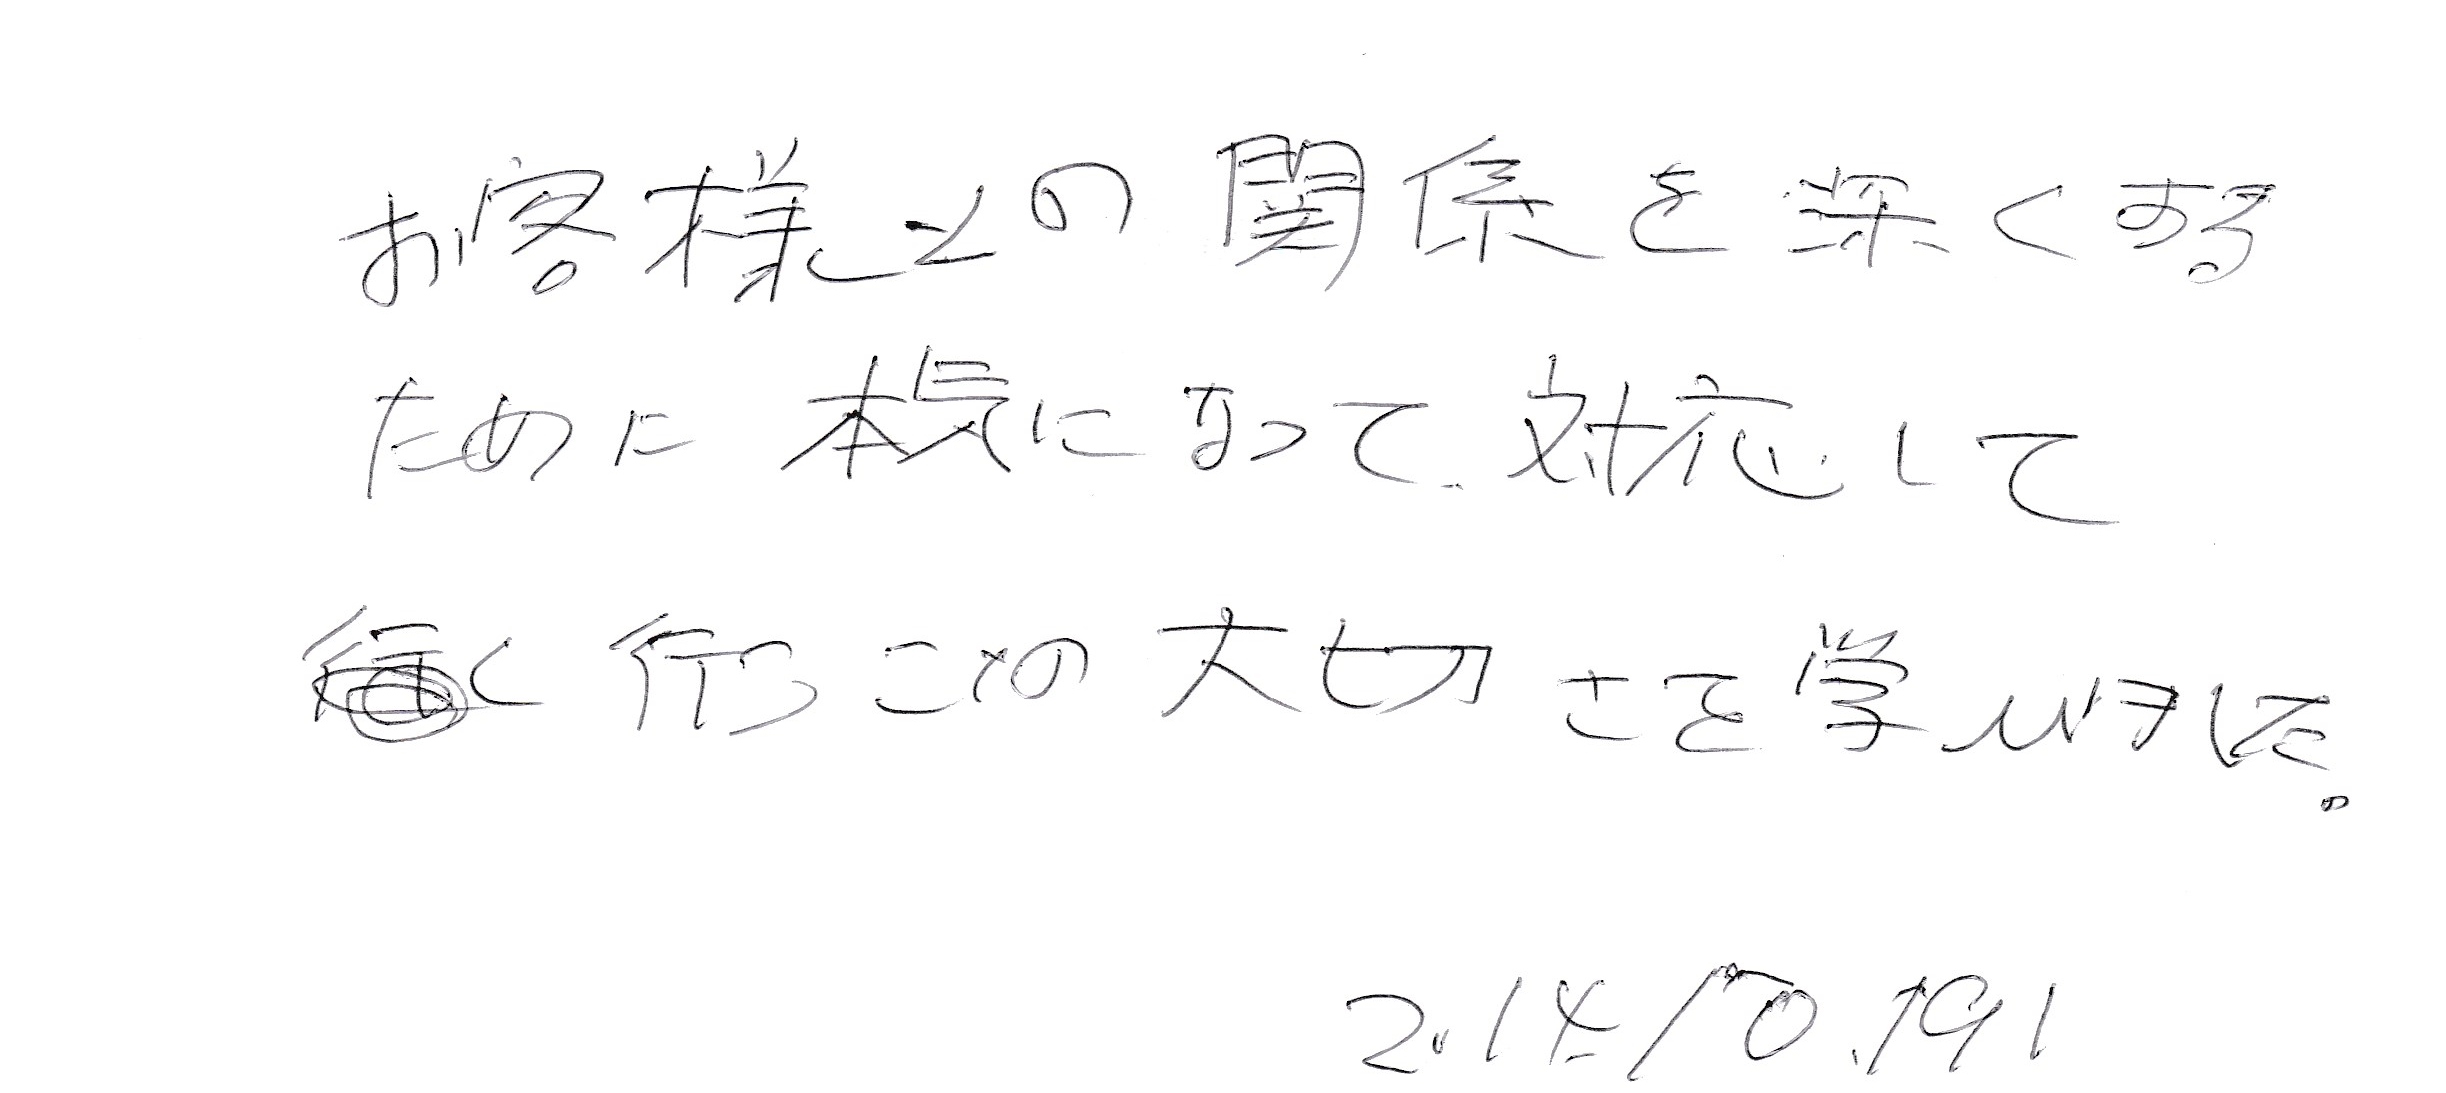 お客様との関係を深くする
ために本気になって対応して
く行うことの大切さを学びました。